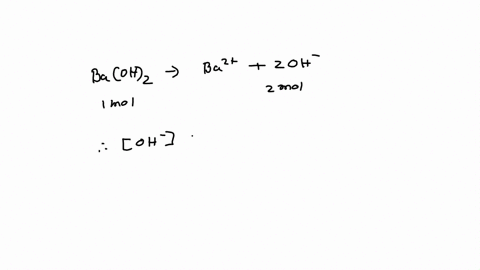 Ba(OH)₂ → Ba²⁺ + 2OH⁻
1 mol 2 mol
∴ [OH⁻]